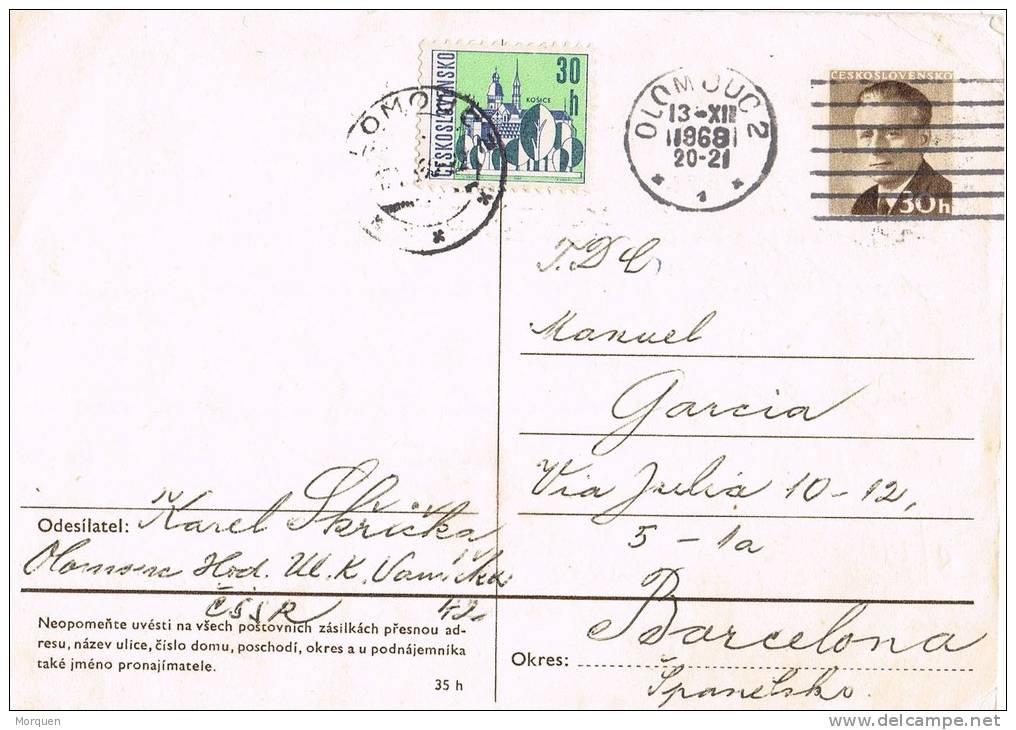 ČESKOSLOVENSKO
30 h
KOŠICE
OLOMOUC 2
13-XII
1968
20-21
1
ČESKOSLOVENSKO
30h
Manuel
Garcia
Via Julia 10-12,
5-1a
Barcelona
Okres:
Španělsko
Odesílatel: Karel Skřička
Olomouc Hod. Ul. K. Vaníčka
ČSSR 42.
Neopomeňte uvésti na všech poštovních zásilkách přesnou ad-
resu, název ulice, číslo domu, poschodí, okres a u podnájemníka
také jméno pronajímatele.
35 h
Morquen
www.delcampe.net